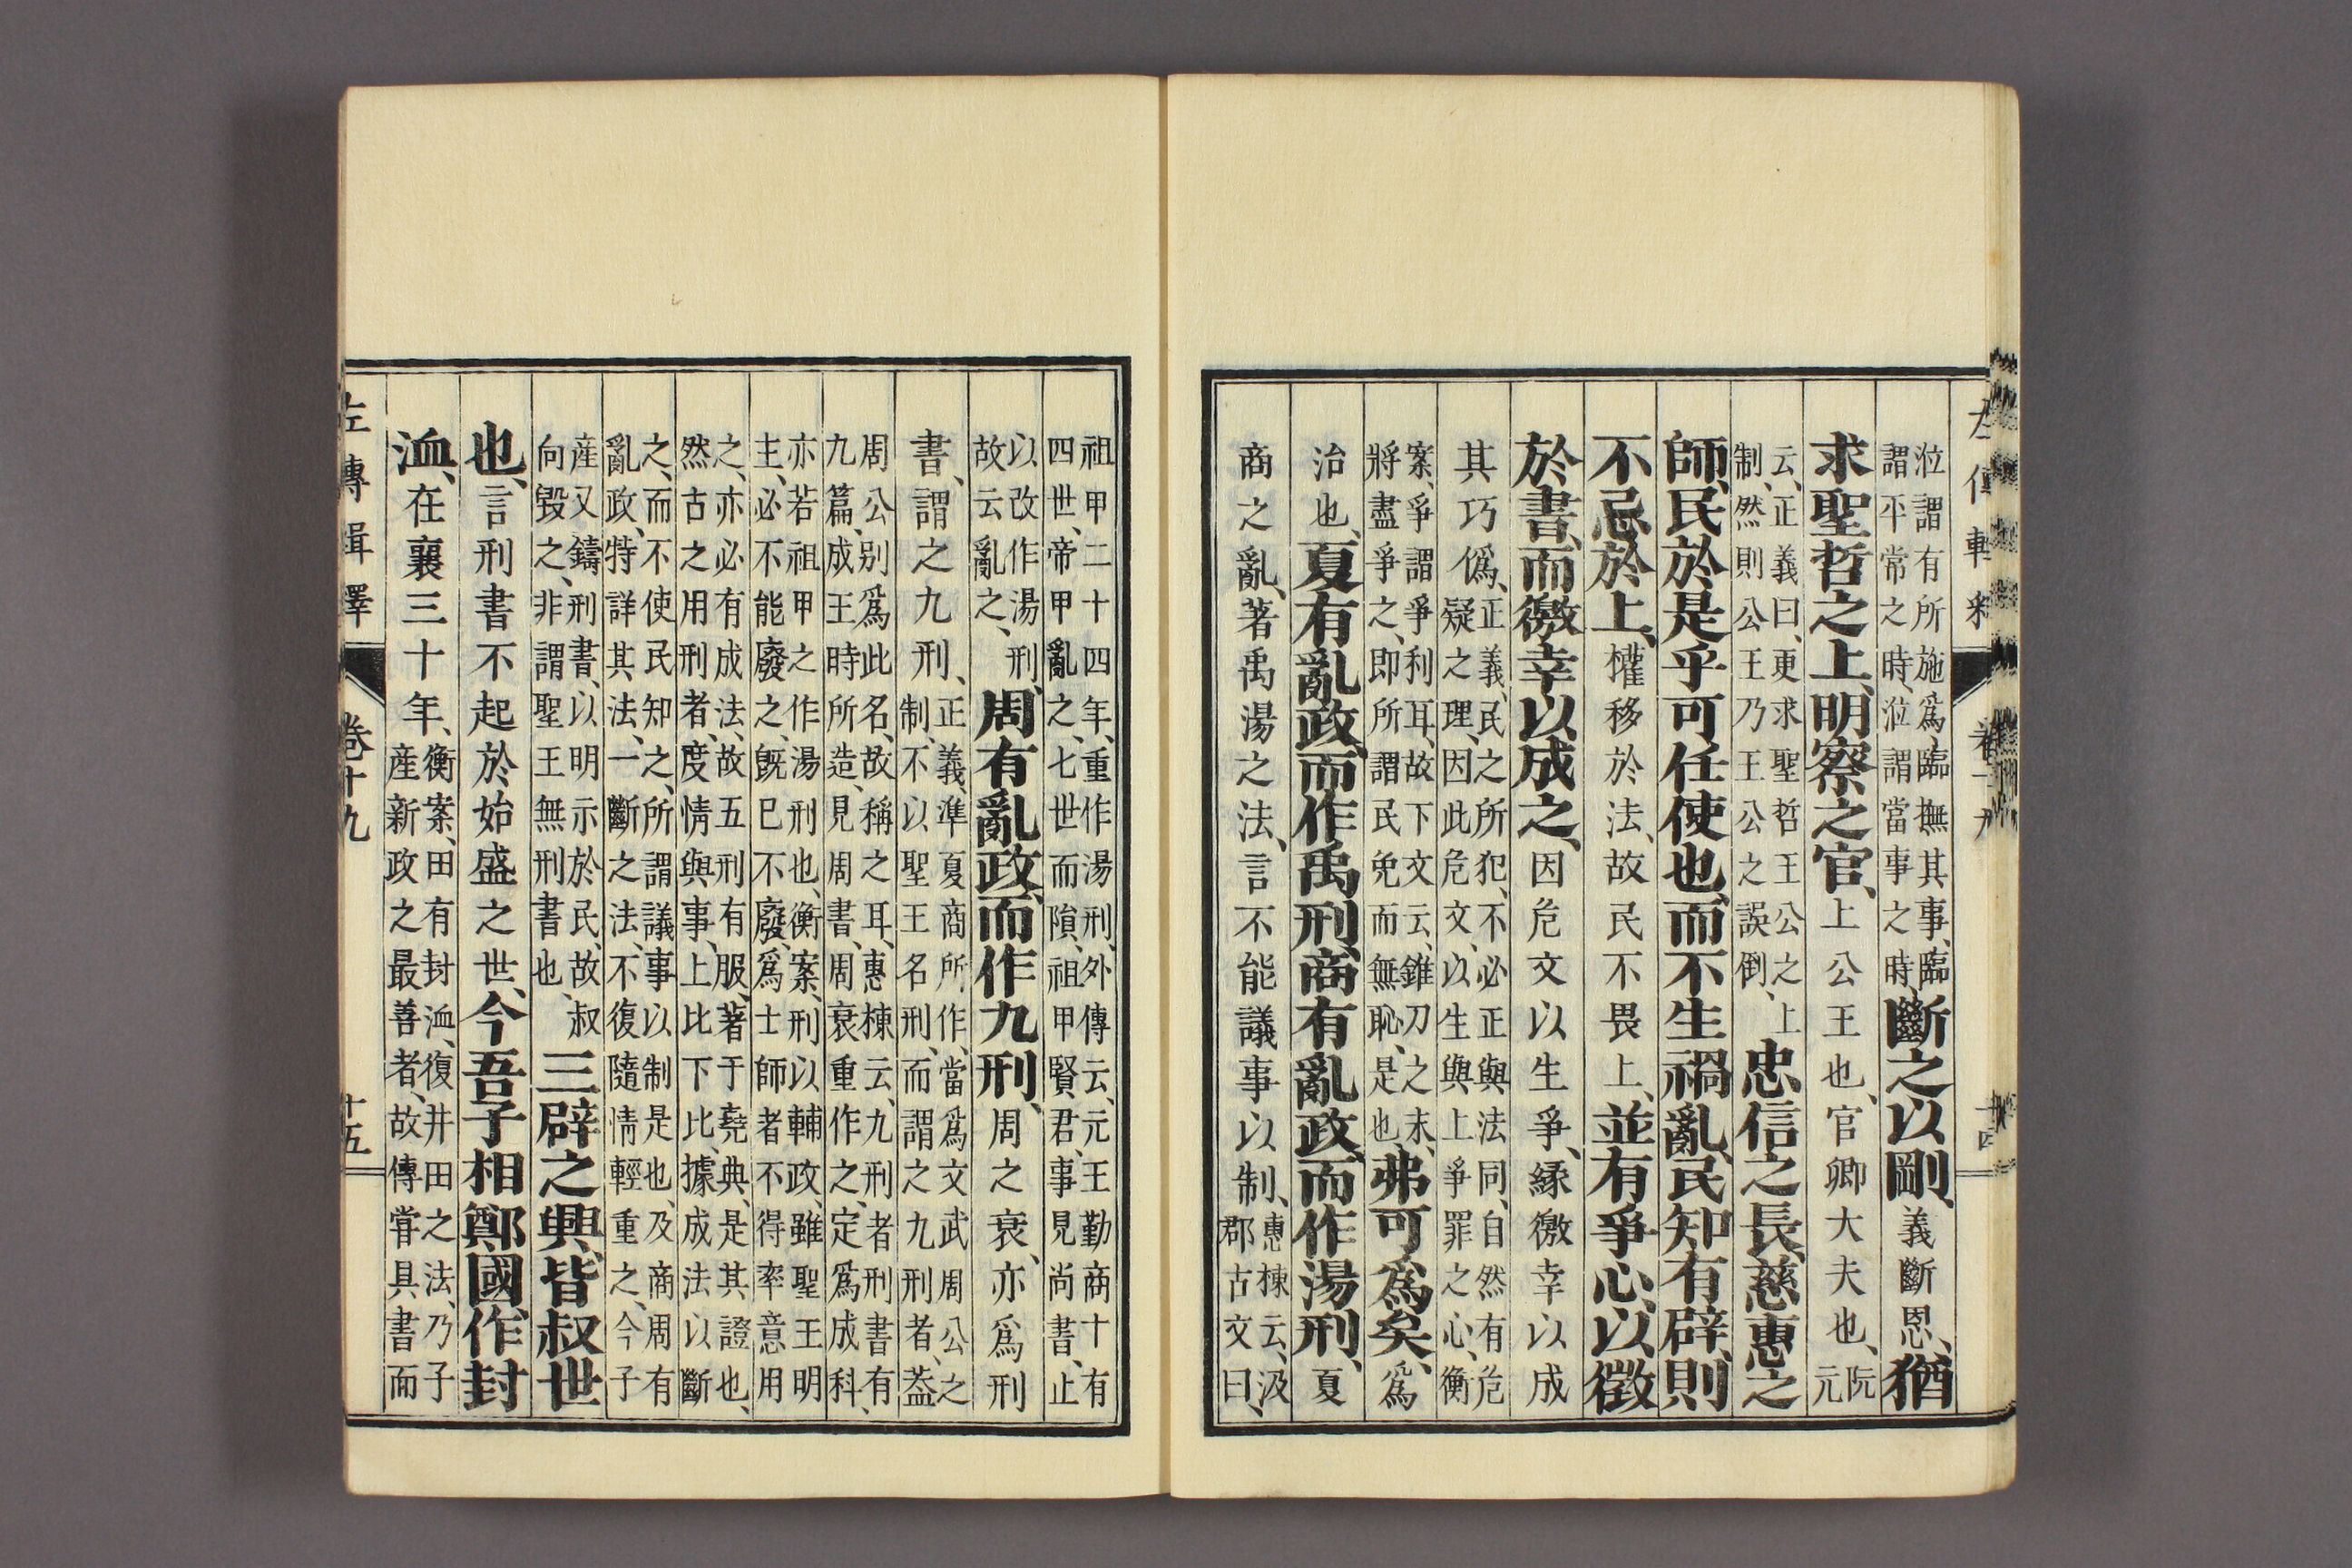 涖謂有所施爲、臨撫其事、臨
謂平常之時、涖謂當事之時、斷之以剛、義斷恩、猶
求聖哲之上、明察之官、上公王也、官卿大夫也、阮元
云、正義曰、更求聖哲王公之上
制、然則公王乃王公之誤倒、忠信之長、慈惠之
師、民於是乎可任使也、而不生禍亂、民知有辟、則
不忌於上、權移於法、故民不畏上、並有爭心、以徵
於書、而徼幸以成之、因危文以生爭、緣徼幸以成
其巧僞、正義、民之所犯、不必正與法同、自然有危
疑之理、因此危文、以生與上爭罪之心、衡
案、爭謂爭利耳、故下文云、錐刀之末、
將盡爭之、卽所謂民免而無恥、是也、弗可爲矣、爲
治也、夏有亂政、而作禹刑、商有亂政、而作湯刑、夏
商之亂、著禹湯之法、言不能議事以制、惠棟云、汲
郡古文曰、
祖甲二十四年、重作湯刑、外傳云、元王勤商十有
四世、帝甲亂之、七世而隕、祖甲賢君、事見尚書、止
以改作湯刑、
故云亂之、周有亂政、而作九刑、周之衰、亦爲刑
書、謂之九刑、正義、準夏商所作、當爲文武周公之
制、不以聖王名刑、而謂之九刑者、蓋
周公別爲此名、故稱之耳、惠棟云、九刑者刑書有
九篇、成王時所造、見周書、周衰、重作之、定爲成科、
亦若祖甲之作湯刑也、衡案、刑以輔政、雖聖王明
主、必不能廢之、既已不廢、爲士師者不得率意用
之、亦必有成法、故五刑有服、著于堯典、是其證也、
然古之用刑者、度情與事、上比下比、據成法以斷
之、而不使民知之、所謂議事以制是也、及商周有
亂政、特詳其法、一斷之法、不復隨情輕重之、今子
産又鑄刑書、以明示於民、故叔
向毀之、非謂聖王無刑書也、三辟之興、皆叔世
也、言刑書不起於始盛之世、今吾子相鄭國、作封
洫、在襄三十年、衡案、田有封洫、復井田之法、乃子
産新政之最善者、故傳甞具書而
左傳輯釋 卷十九 十五